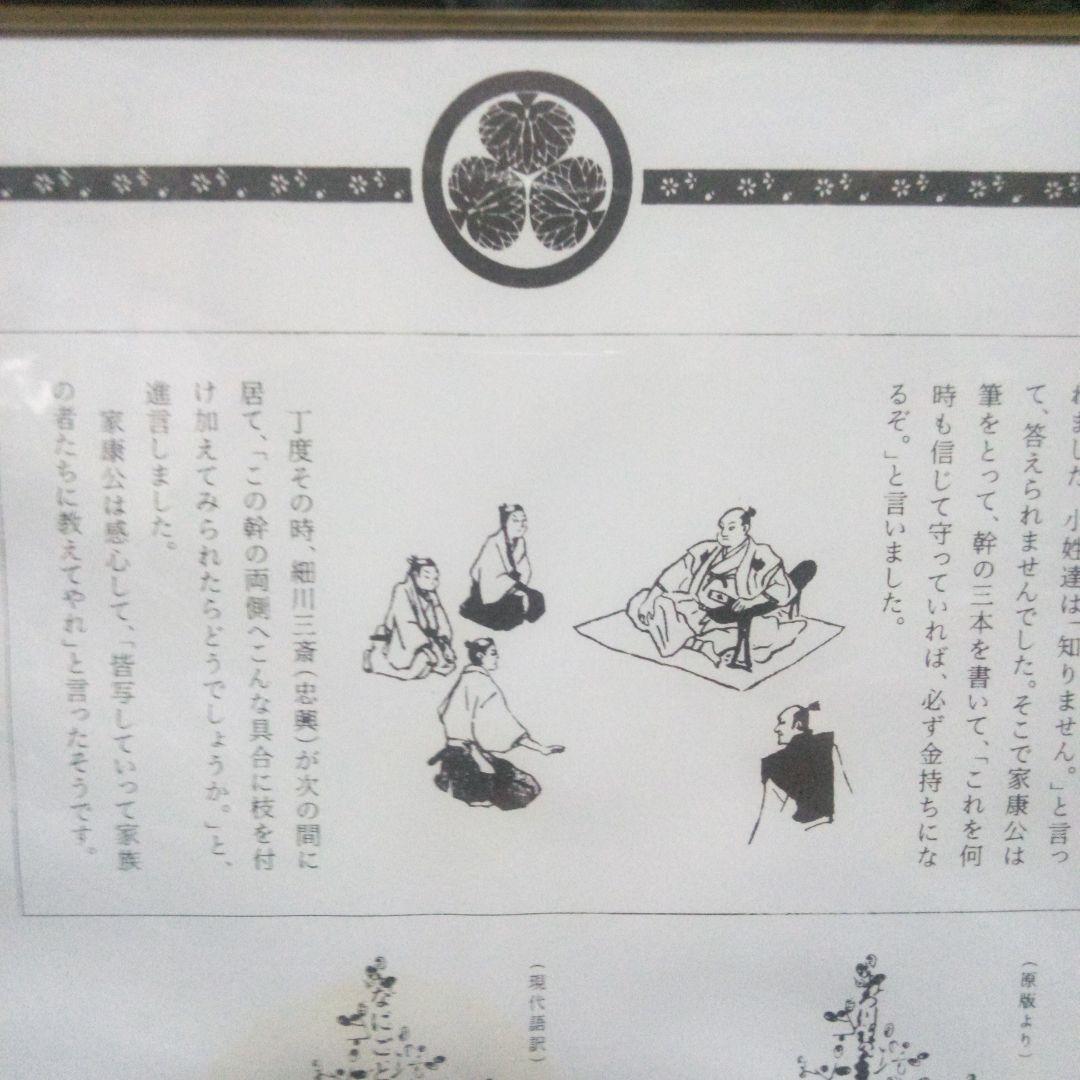 れました。小姓達は「知りません。」と言っ
て、答えられませんでした。そこで家康公は
筆をとって、幹の三本を書いて、「これを何
時も信じて守っていれば、必ず金持ちにな
るぞ。」と言いました。
丁度その時、細川三斎(忠興)が次の間に
居て、「この幹の両側へこんな具合に枝を付
け加えてみられたらどうでしょうか。」と、
進言しました。
家康公は感心して、「皆写していって家族
の者たちに教えてやれ」と言ったそうです。
(原版より)
(現代語訳)
なにごと